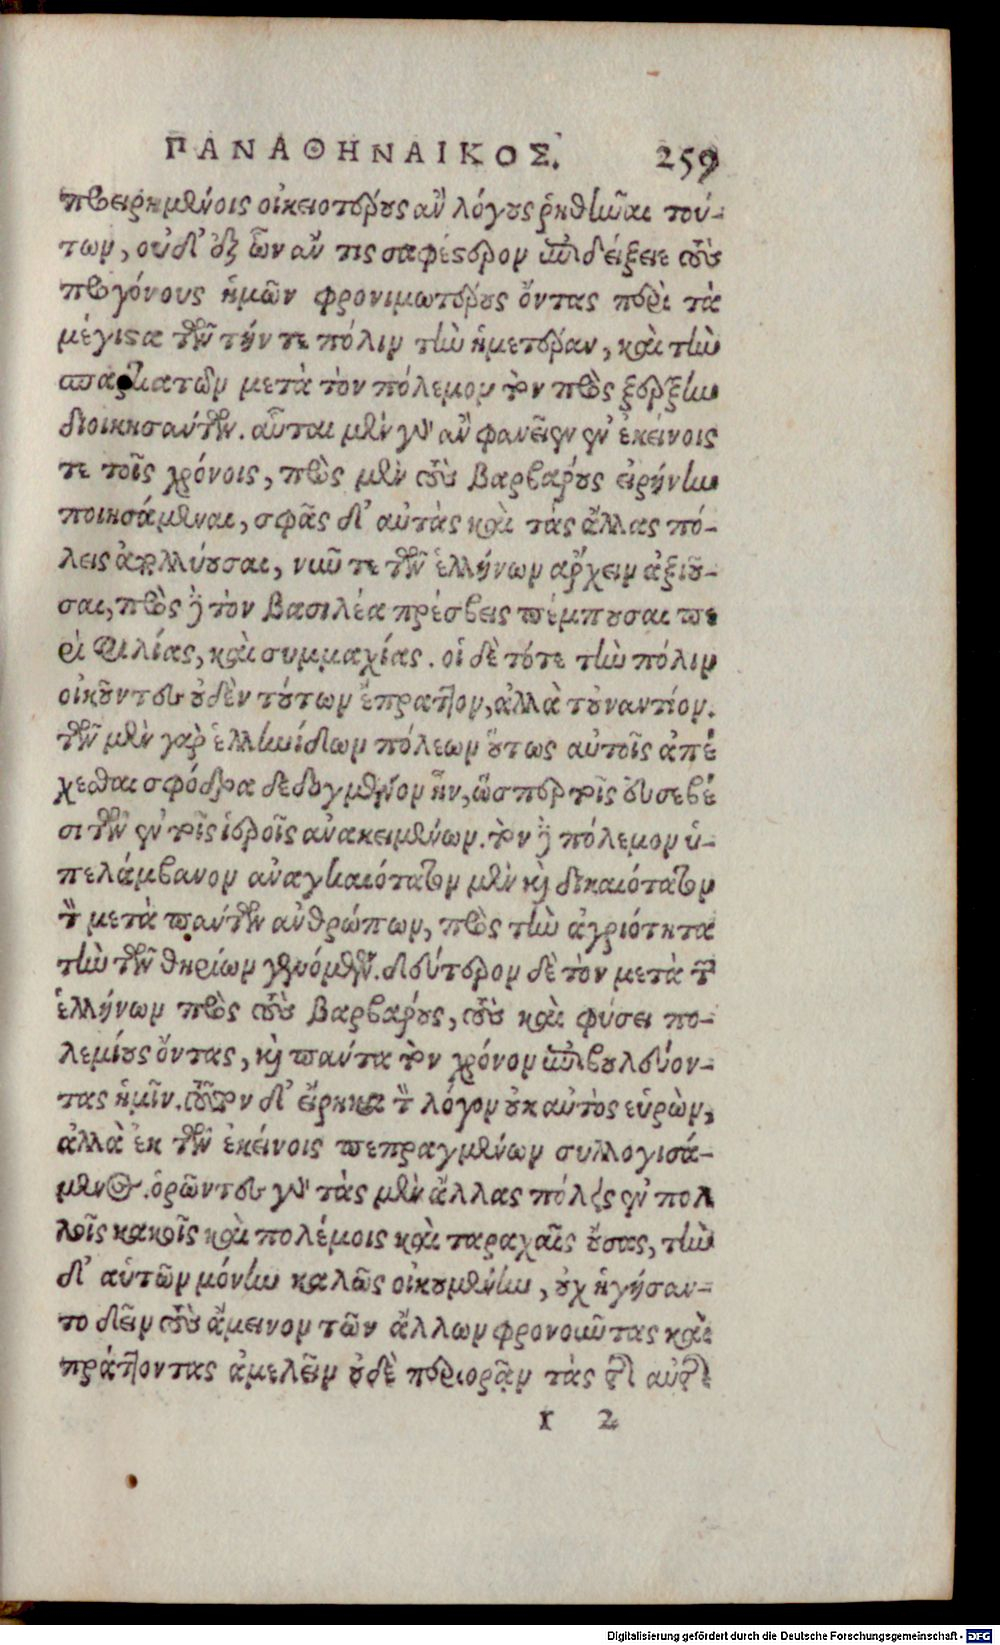 ΠΑΝΑΘΗΝΑΙΚΟΣ. 259
προειρημένοις οἰκειοτέρους ἂν λόγους ῥηθῆναι τού-
των, οὐδ' ἐξ ὧν ἄν τις σαφέστερον ἐπιδείξειε τοὺς
προγόνους ἡμῶν φρονιμωτέρους ὄντας περὶ τὰ
μέγιστα τῶν τήν τε πόλιν τὴν ἡμετέραν, καὶ τὴν
σπαρτιατῶν μετὰ τὸν πόλεμον τὸν πρὸς ξέρξην
διοικησάντων. αὗται μὲν γὰρ ἂν φανεῖεν ἐν ἐκείνοις
τε τοῖς χρόνοις, πρὸς μὲν τοὺς βαρβάρους εἰρήνην
ποιησάμεναι, σφᾶς δ' αὐτὰς καὶ τὰς ἄλλας πό-
λεις ἀπολλύουσαι, νῦν τε τῶν ἑλλήνων ἄρχειν ἀξιοῦ-
σαι, πρὸς δὲ τὸν βασιλέα πρέσβεις πέμπουσαι πε
ρὶ φιλίας, καὶ συμμαχίας. οἱ δὲ τότε τὴν πόλιν
οἰκοῦντες οὐδὲν τούτων ἔπραττον, ἀλλὰ τοὐναντίον.
τῶν μὲν γὰρ ἑλληνίδων πόλεων οὕτως αὐτοῖς ἀπέ
χεσθαι σφόδρα δεδογμένον ἦν, ὥσπερ τοῖς εὐσεβέ
σι τῶν ἐν τοῖς ἱεροῖς ἀνακειμένων. τὸν δὲ πόλεμον ὑ-
πελάμβανον ἀναγκαιότατον μὲν καὶ δικαιότατον
τὸν μετὰ πάντων ἀνθρώπων, πρὸς τὴν ἀγριότητα
τὴν τῶν θηρίων γενόμενον. δεύτερον δὲ τὸν μετὰ τῶν
ἑλλήνων πρὸς τοὺς βαρβάρους, τοὺς καὶ φύσει πο-
λεμίους ὄντας, καὶ πάντα τὸν χρόνον ἐπιβουλεύον-
τας ἡμῖν. τοῦτον δ' εἴρηκα τὸν λόγον οὐκ αὐτὸς εὑρὼν,
ἀλλὰ ἐκ τῶν ἐκείνοις πεπραγμένων συλλογισά-
μενος. ὁρῶντες γὰρ τὰς μὲν ἄλλας πόλεις ἐν πολ
λοῖς κακοῖς καὶ πολέμοις καὶ ταραχαῖς οὔσας, τὴν
δ' αὑτῶν μόνην καλῶς οἰκουμένην, οὐχ ἡγήσαν-
το δεῖν τοὺς ἄμεινον τῶν ἄλλων φρονοῦντας καὶ
πράττοντας ἀμελεῖν οὐδὲ περιορᾷν τὰς τῆς αὐτῆς
I 2
Digitalisierung gefördert durch die Deutsche Forschungsgemeinschaft - DFG